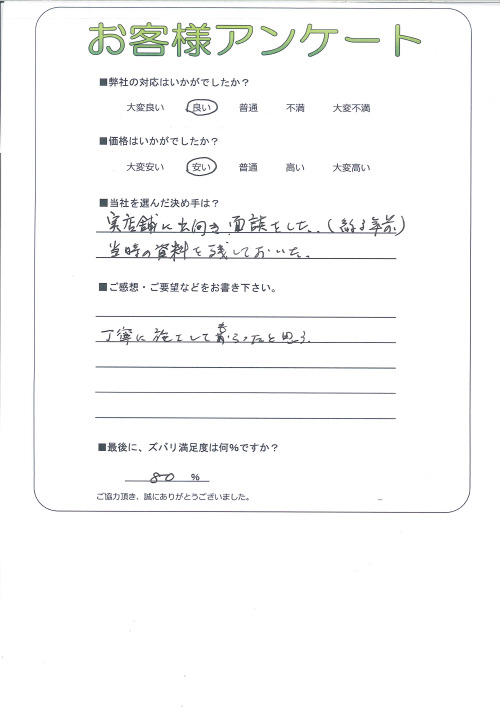 お客様アンケート
■弊社の対応はいかがでしたか?
大変良い 良い 普通 不満 大変不満
■価格はいかがでしたか?
大変安い 安い 普通 高い 大変高い
■当社を選んだ決め手は?
実店舗に出向き面談をした。(約3年前)
当時の資料を残しておいた。
■ご感想・ご要望などをお書き下さい。
丁寧に施工して もらったと思う。
■最後に、ズバリ満足度は何%ですか?
80 %
ご協力頂き、誠にありがとうございました。